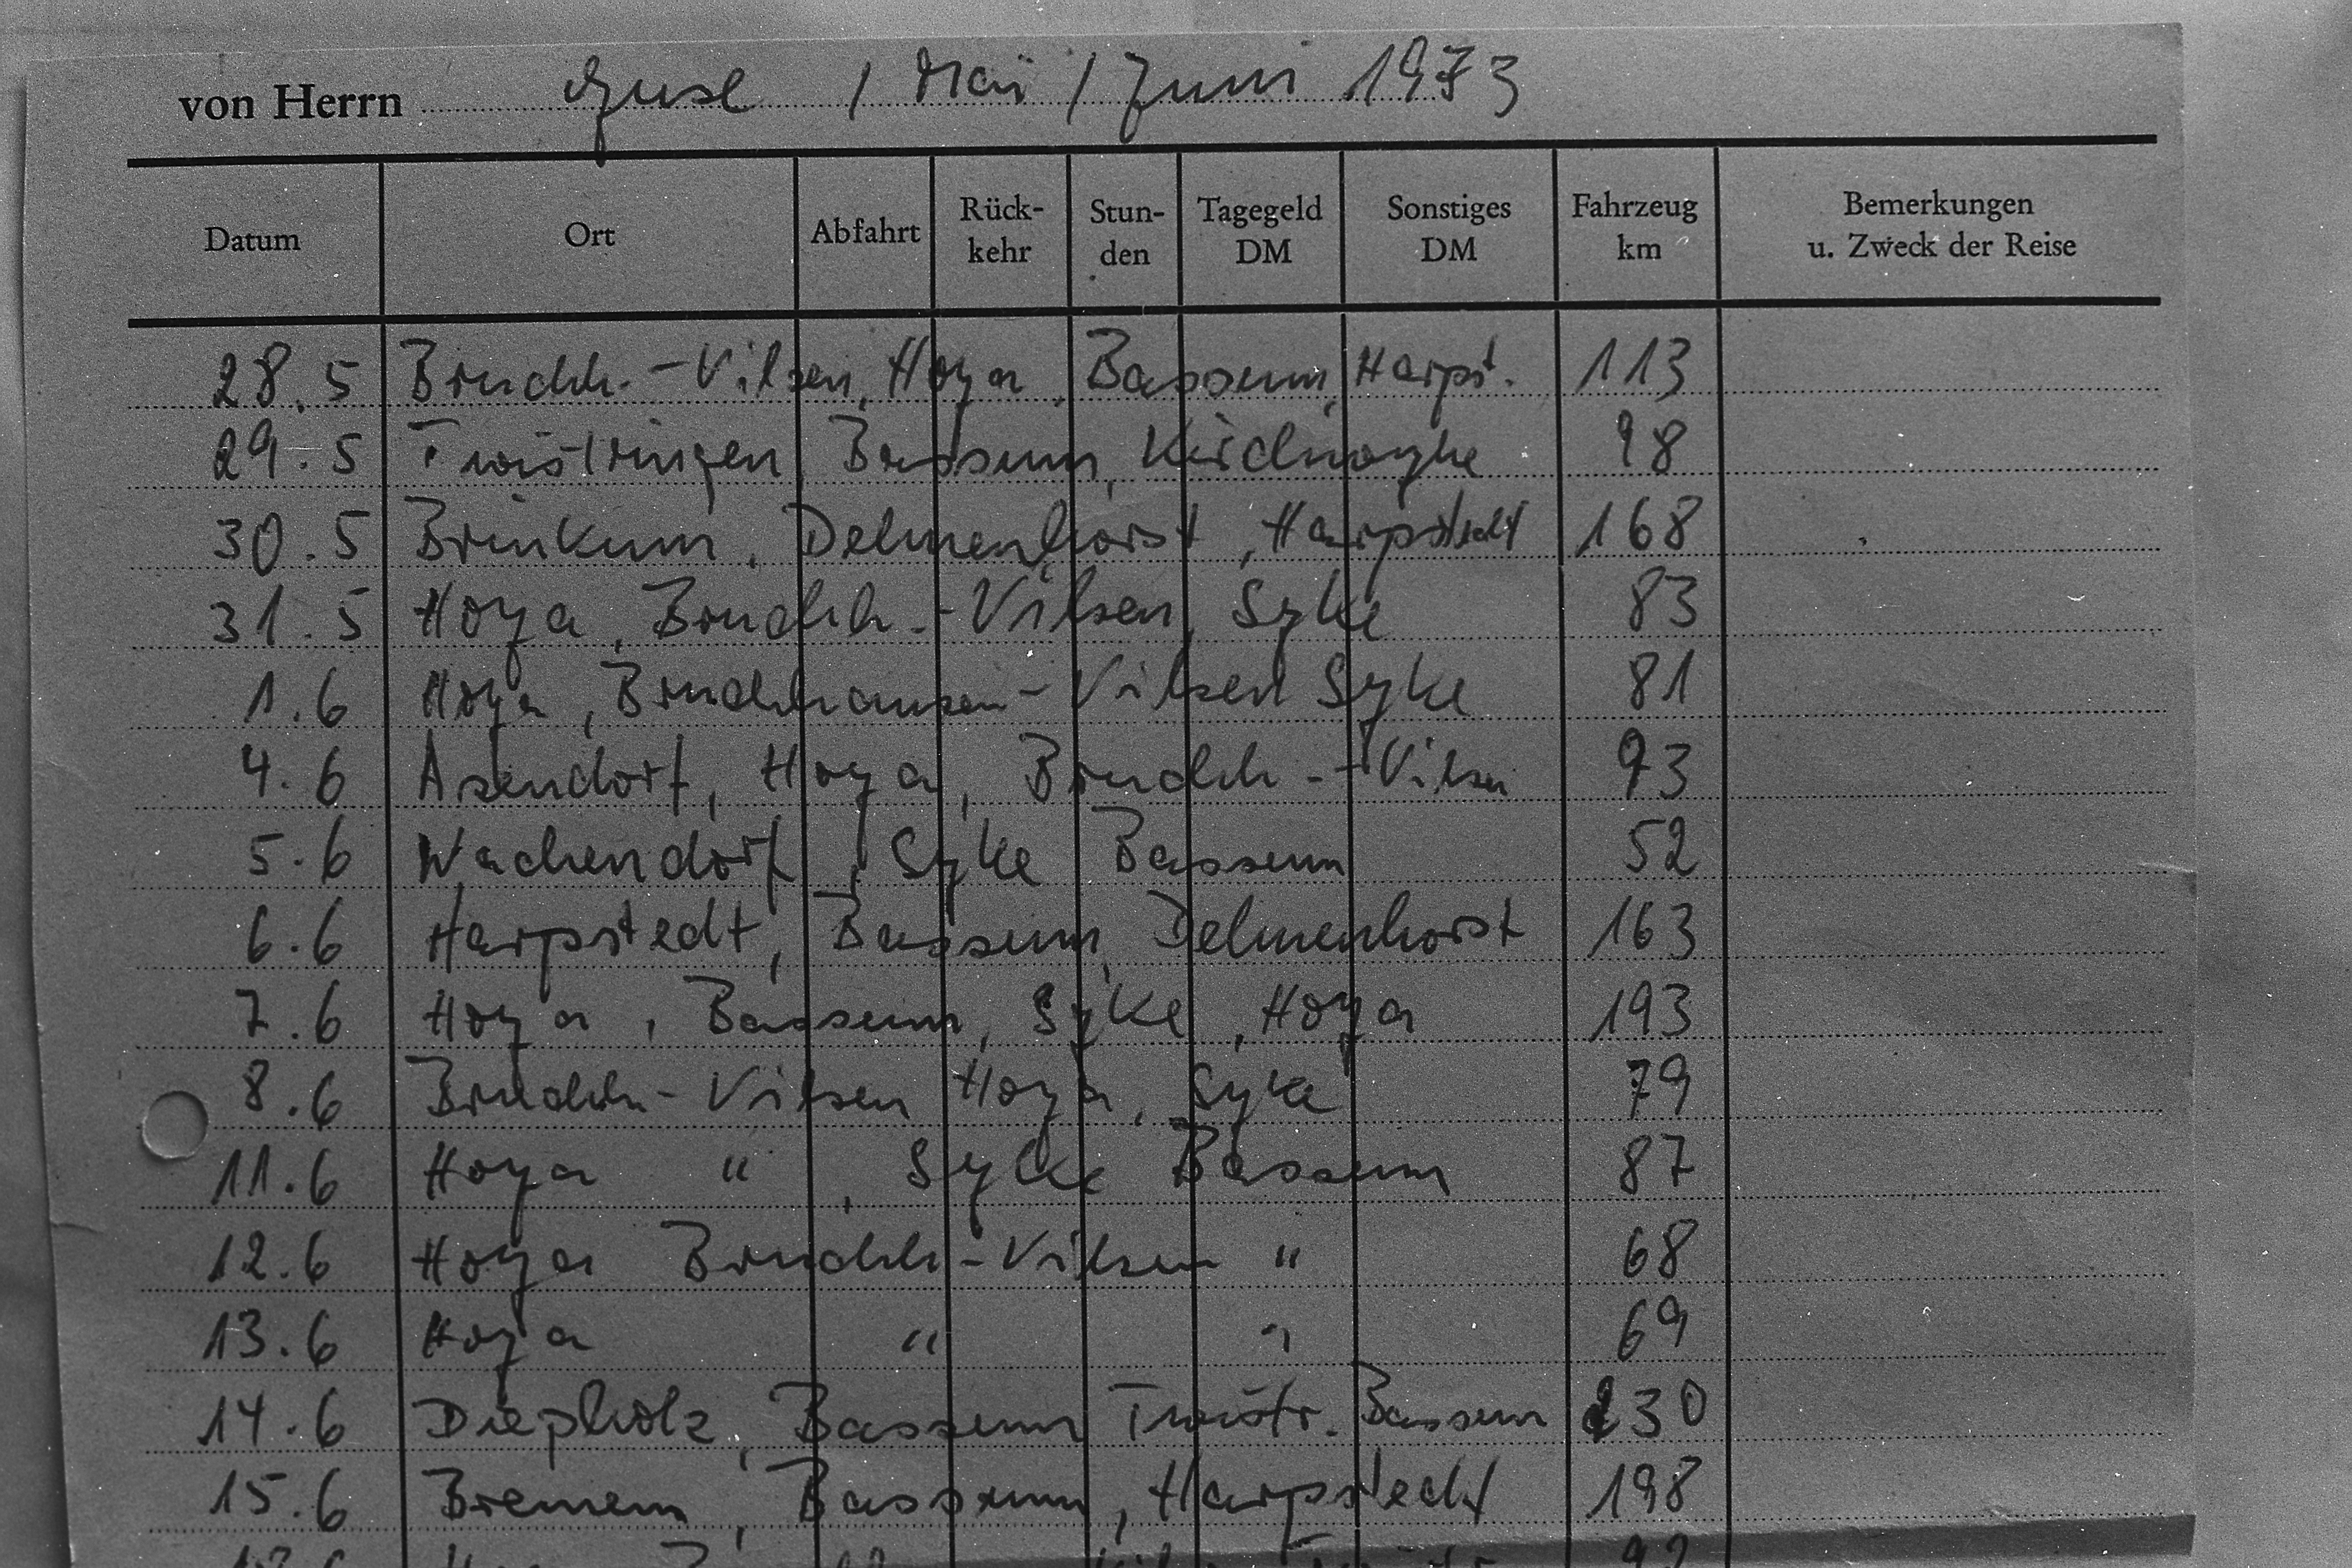 von Herrn Guse / Mai / Juni 1973
Datum Ort Abfahrt Rück- kehr Stun- den Tagegeld DM Sonstiges DM Fahrzeug km Bemerkungen u. Zweck der Reise
28.5 Bruchh.-Vilsen, Hoya, Bassum, Harpst. 113
29.5 Twistringen, Bassum, Kirchweyhe 98
30.5 Brinkum, Delmenhorst, Harpstedt 168
31.5 Hoya, Bruchh.-Vilsen, Syke 83
1.6 Hoya, Bruchhausen-Vilsen Syke 81
4.6 Asendorf, Hoya, Bruchh-Vilsen 93
5.6 Wachendorf, Syke Bassum 52
6.6 Harpstedt, Bassum, Delmenhorst 163
7.6 Hoya, Bassum, Syke, Hoya 193
8.6 Bruchh-Vilsen Hoya, Syke 79
11.6 Hoya " , Syke Bassum 87
12.6 Hoya Bruchh-Vilsen " 68
13.6 Hoya " " 69
14.6 Diepholz, Bassum Twistr. Bassum 230
15.6 Bremen, Bassum, Harpstedt 198
92